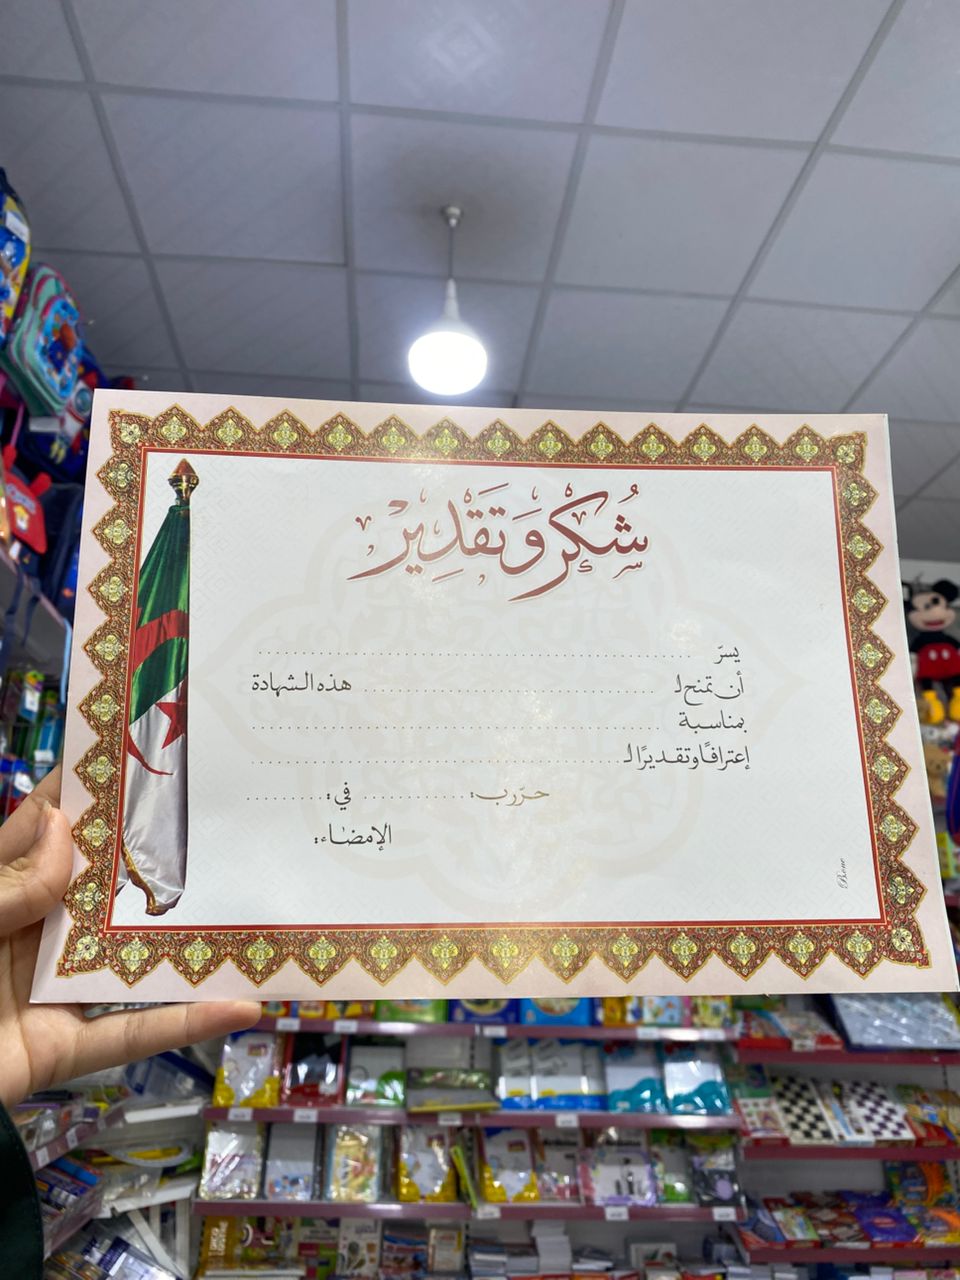 شُكْرٌ وَتَقْدِيرٌ
يسرّ ........................................................
أن تمنح لـ ........................................ هذه الشهادة
بمناسبة ........................................................
إعترافًا وتقديرًا لـ ................................................
حرّر بـ: .............. في: ..........
الإمضاء:
Bone